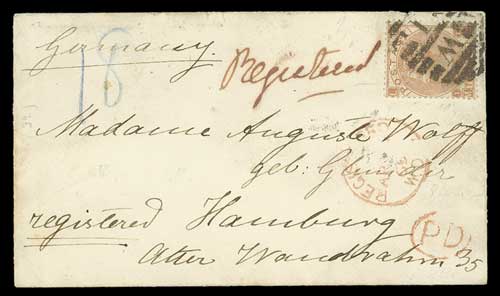 Germany.
18
Registered
Madame Auguste Wolff
geb:
registered Hamburg
PD
Alter Wandrahm 35